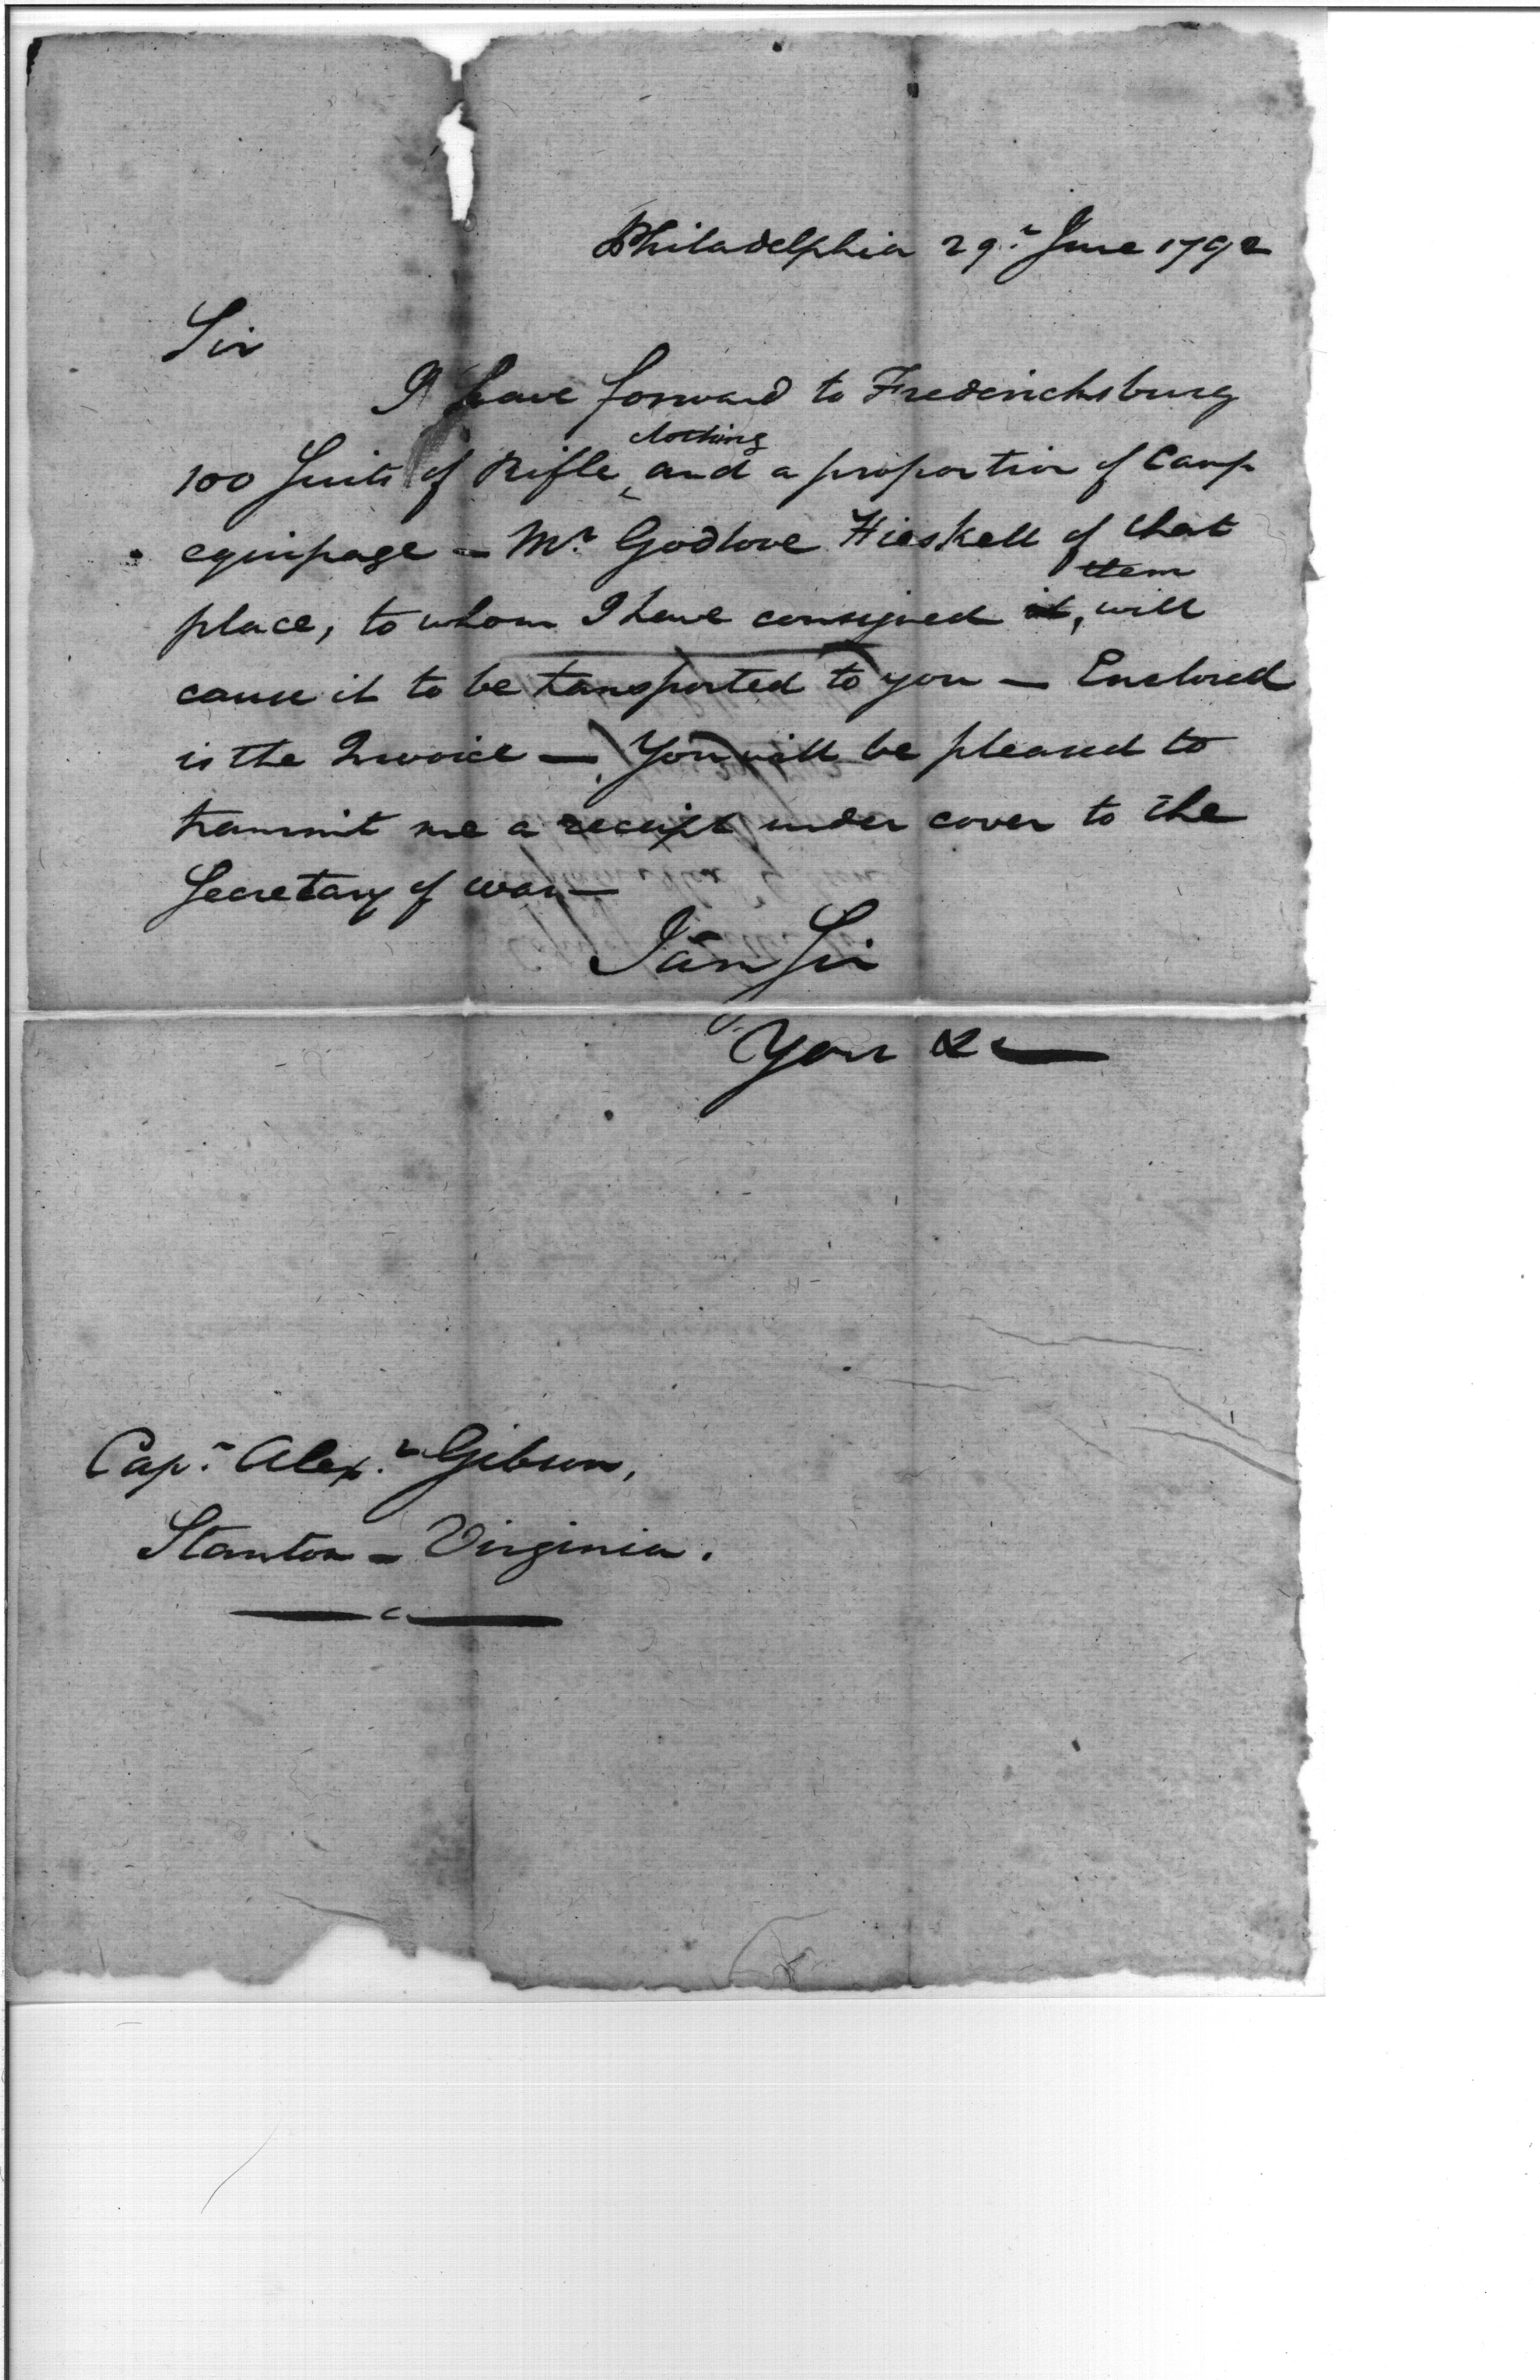 Philadelphia 29th June 1792
Sir
I have forward to Fredericksburg
clothing
100 Suits of Rifle ‸ and a proportion of Camp
equipage – Mr Godlove Hieskell of that
them
place, to whom I have consigned it, will
cause it to be transported to you — Enclosed
is the Invoice — You will be pleased to
transmit me a receipt under cover to the
Secretary of war —
I am Sir
Your &c
Capt. Alexr Gibson,
Stanton – Virginia.